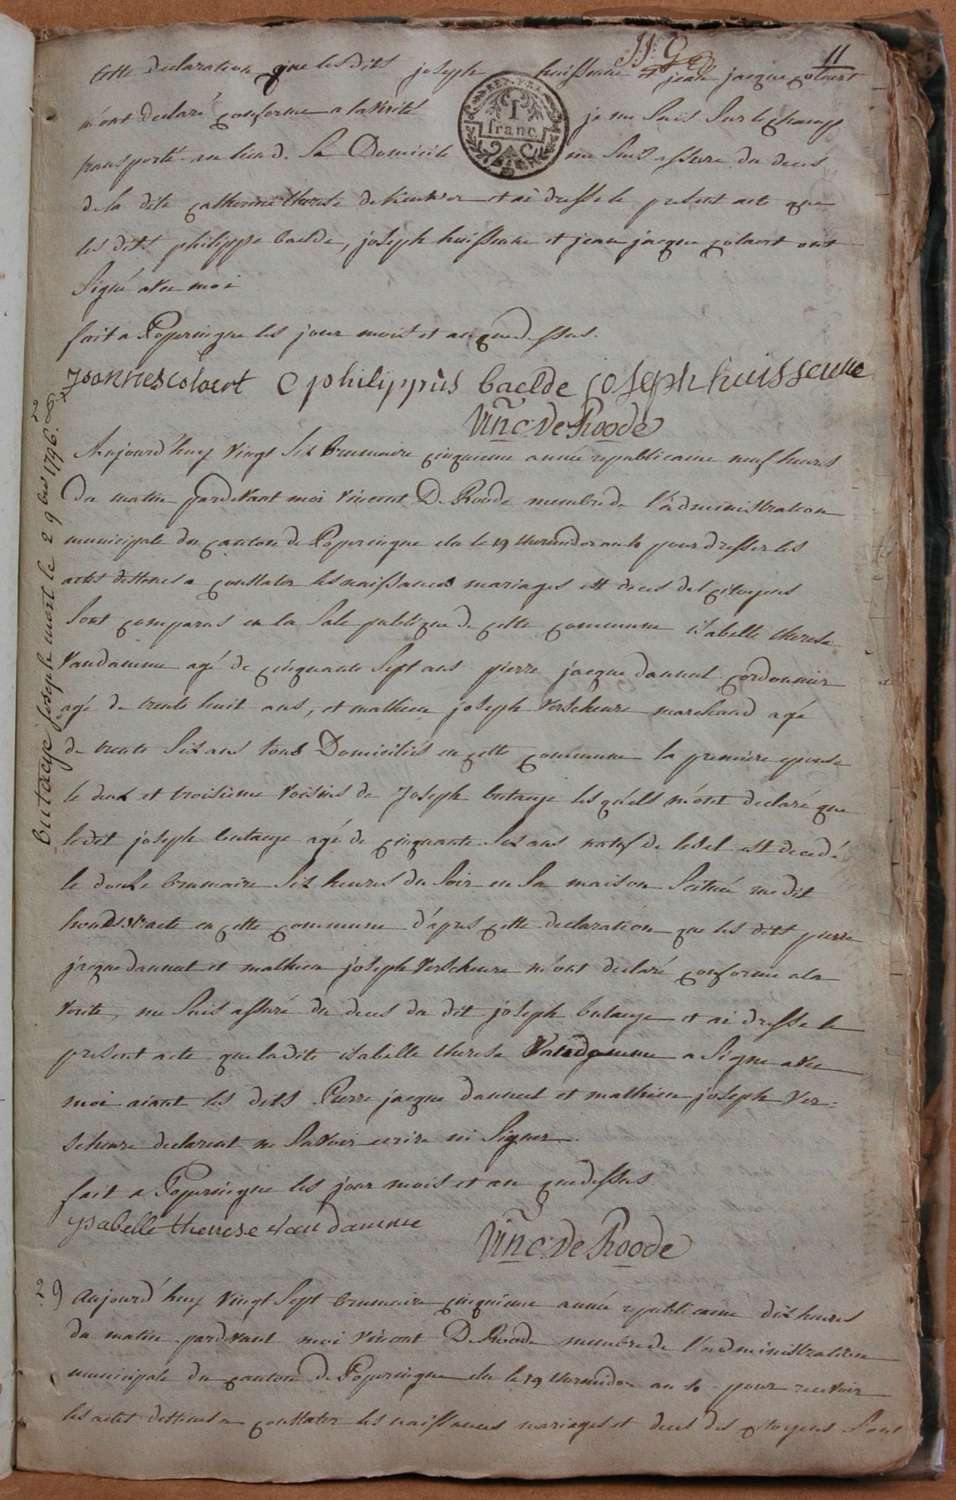 11
cette declaration que lesdits joseph huissenne et jean jacque colaert
m'ont declaré conforme a la verité je me suis sur le champ
transporté au lieu d. sa Domicile me suis assure du deces
de la dite catherine therese et ai dresse le present acte que
les dits philippe baelde, joseph huissenne et jean jacque colaert ont
signé avec moi
fait a Poperingue les jour mois et an que dessus.
Joannes colaert philippus baelde joseph huissenne
Vinc. De Roode
Butaeye joseph mort le 2 9bre 1796.
28
Aujourd'huy vingt six brumaire cinquieme année republicaine neuf heures
du matin pardevant moi vincent De Roode membre de l'administration
municipale du canton de Poperingue elu le 19 thermidor an 4 pour dresser les
actes destines a constater les naissances mariages et deces des citoyens
sont comparus en la sale publique de cette commune isabelle therese
vandamme agé de cinquante sept ans pierre jacque danneel cordonnier
agé de trente huit ans, et mathieu joseph verscheure marchand agé
de trente six ans tous Domiciliés en cette commune la premiere epouse
le deux et troisieme voisins de joseph butaeye les quels m'ont declaré que
ledit joseph butaeye agé de cinquante six ans natif de est decedé
le douze brumaire six heures du soir en sa maison scitué
en cette commune d'apres cette declaration que les dits pierre
jacque danneel et mathieu joseph verscheure m'ont declaré conforme a la
verite, me suis assuré du deces du dit joseph butaeye et ai dresse le
present acte que ladite isabelle therese Vandamme a signe avec
moi aiant les dits Pierre jacque danneel et mathieu joseph ver=
scheure declarent ne savoir ecrire ni signer.
fait a Poperingue les jour mois et an que dessus
ysabelle therese van damme Vinc. De Roode
29) Aujourd'huy vingt sept brumaire cinquieme année republicaine dix heures
du matin pardevant moi vincent De Roode membre de l'administration
municipale du canton de Poperingue elu le 19 thermidor an 4 pour recevoir
les actes destines a constater les naissances mariages et deces des citoyens sont
1
franc.